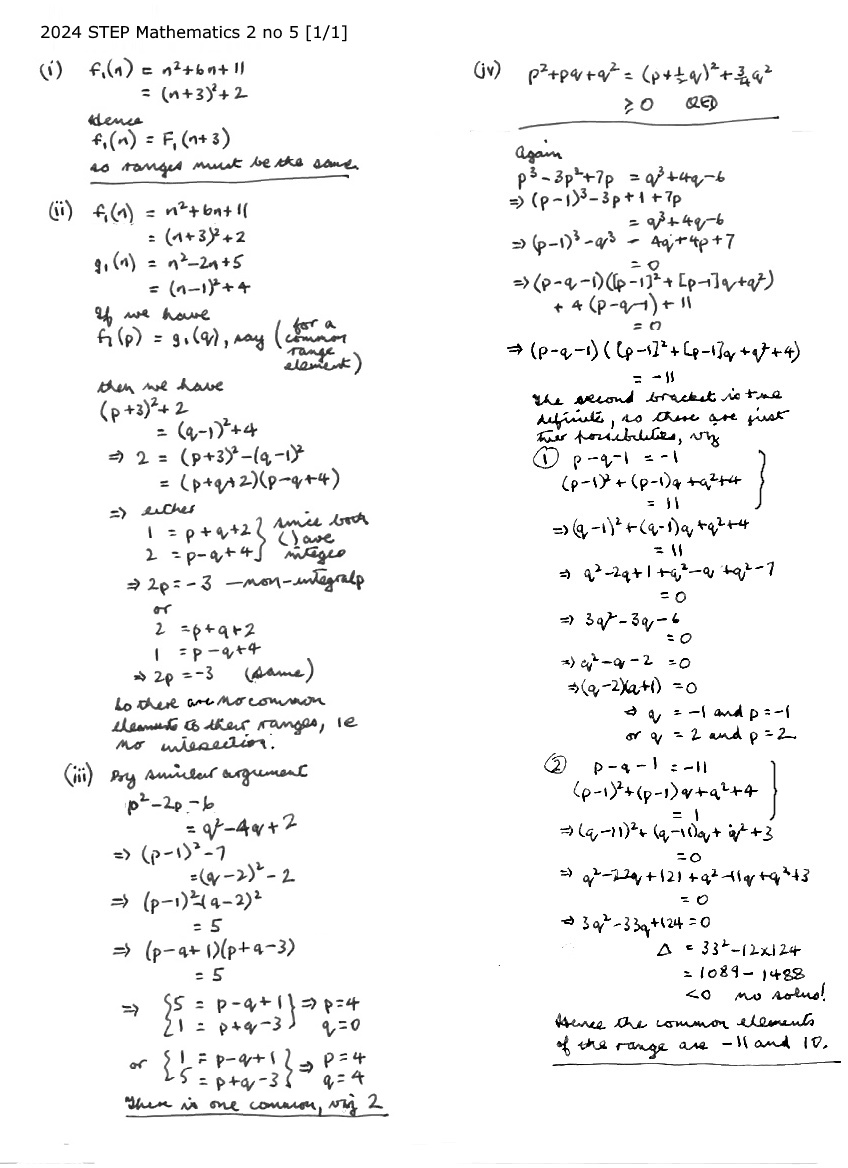 2024 STEP Mathematics 2 no 5 [1/1]
(i) f₁(n) = n²+6n+11
= (n+3)²+2
Hence
f₁(n) = F₁(n+3)
so ranges must be the same.
(ii) f₁(n) = n²+6n+11
= (n+3)²+2
g₁(n) = n²-2n+5
= (n-1)²+4
If we have
f₁(p) = g₁(q), say (for a common range element)
then we have
(p+3)²+2
= (q-1)²+4
⇒ 2 = (p+3)²-(q-1)²
= (p+q+2)(p-q+4)
⇒ either
1 = p+q+2 } since both
2 = p-q+4 } ( ) are integers
⇒ 2p = -3 — non-integral p
or
2 = p+q+2
1 = p-q+4
⇒ 2p = -3 (same)
So there are no common
elements to their ranges, ie
no intersection.
(iii) By similar argument
p²-2p-6
= q²-4q+2
⇒ (p-1)²-7
= (q-2)²-2
⇒ (p-1)²-(q-2)²
= 5
⇒ (p-q+1)(p+q-3)
= 5
⇒ {5 = p-q+1} ⇒ p=4
{1 = p+q-3} q=0
or {1 = p-q+1} ⇒ p=4
{5 = p+q-3} q=4
There is one common, viz 2
(iv) p²+pq+q² = (p+½q)²+¾q²
≥ 0 QED
Again
p³-3p²+7p = q³+4q-6
⇒ (p-1)³-3p+1+7p
= q³+4q-6
⇒ (p-1)³-q³ - 4q+4p+7
= 0
⇒ (p-q-1)([p-1]²+[p-1]q+q²)
+ 4(p-q-1)+11
= 0
⇒ (p-q-1)([p-1]²+[p-1]q+q²+4)
= -11
The second bracket is +ve
definite, so there are just
two possibilities, viz
① p-q-1 = -1
(p-1)²+(p-1)q+q²+4
= 11
⇒ (q-1)²+(q-1)q+q²+4
= 11
⇒ q²-2q+1+q²-q+q²-7
= 0
⇒ 3q²-3q-6
= 0
⇒ q²-q-2 = 0
⇒ (q-2)(q+1) = 0
⇒ q = -1 and p = -1
or q = 2 and p = 2
② p-q-1 = -11
(p-1)²+(p-1)q+q²+4
= 1
⇒ (q-11)²+(q-11)q+q²+3
= 0
⇒ q²-22q+121+q²-11q+q²+3
= 0
⇒ 3q²-33q+124=0
Δ = 33²-12×124
= 1089-1488
<0 no solns!
Hence the common elements
of the range are -11 and 10.